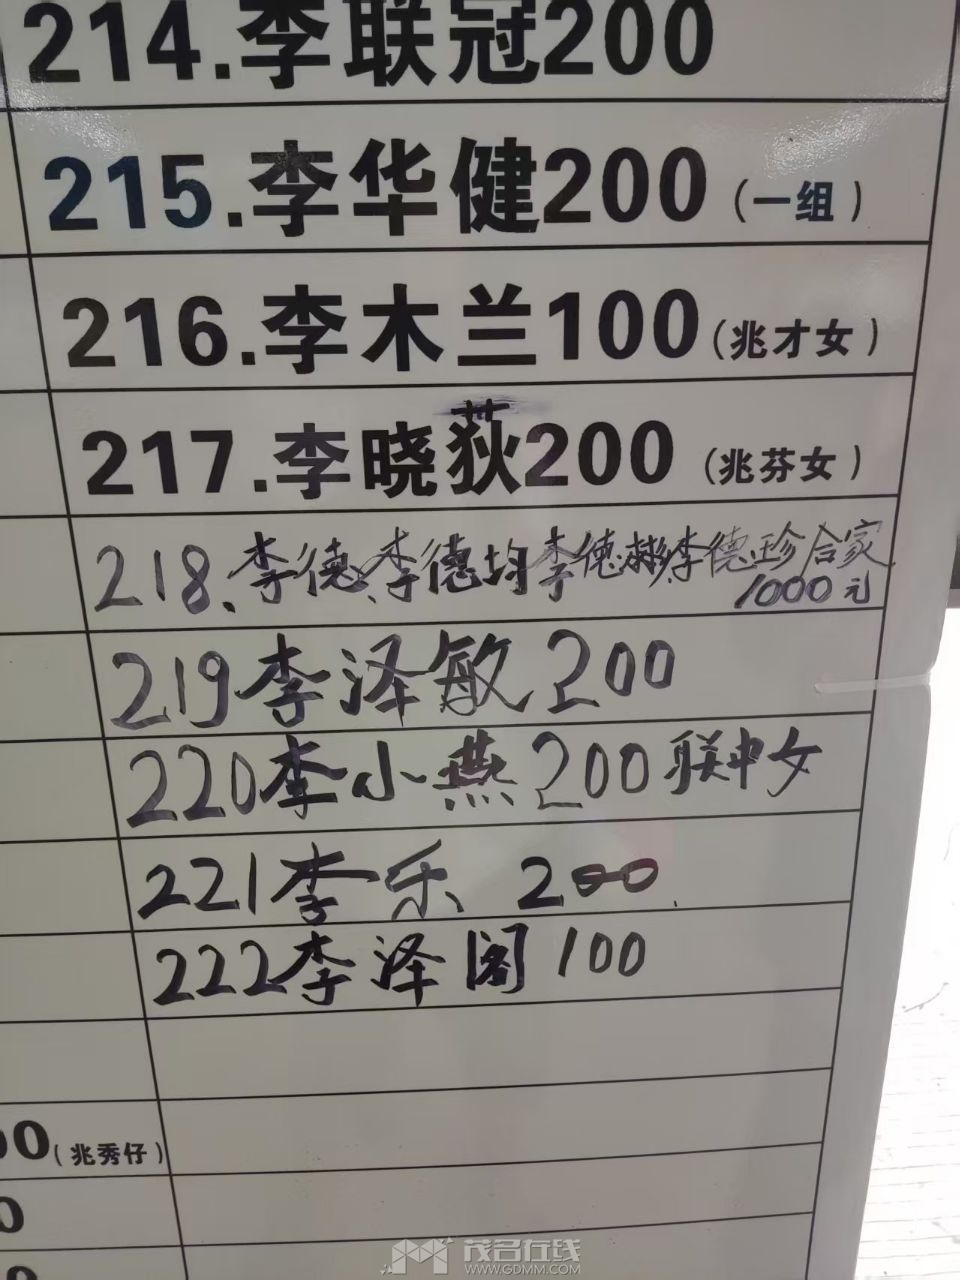 214.李联冠200
215.李华健200(一组)
216.李木兰100(兆才女)
217.李晓荻200(兆芬女)
218、李德、李德均李德彬李德珍合家
1000元
219李泽敏200
220李小燕200联中女
221李乐 200
222李泽阁100
00(兆秀仔)
0
0
茂名在线
WWW.GDMM.COM